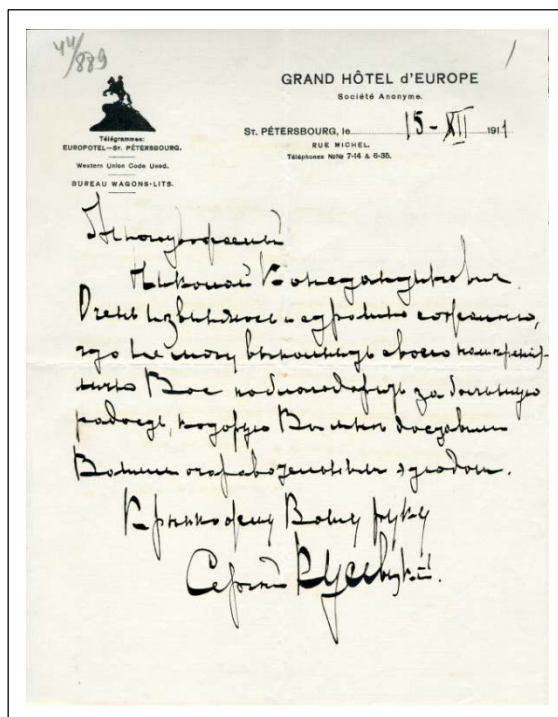 44/889
1
GRAND HÔTEL d'EUROPE
Société Anonyme.
Télégrammes:
EUROPOTEL—ST. PÉTERSBOURG.
Western Union Code Used.
BUREAU WAGONS-LITS.
ST. PÉTERSBOURG, le 15-XII 1911
RUE MICHEL.
Téléphones №№ 7-14 & 6-35.
Многоуважаемый
Николай Константинович.
Очень извиняюсь и страшно
что не могу выполнить своего намерения
лично Вас поблагодарить за большую
радость, которую Вы мне доставили
Вашим очаровательным этюдом.
Крепко жму Вашу руку
Сергей Кусевицкий.